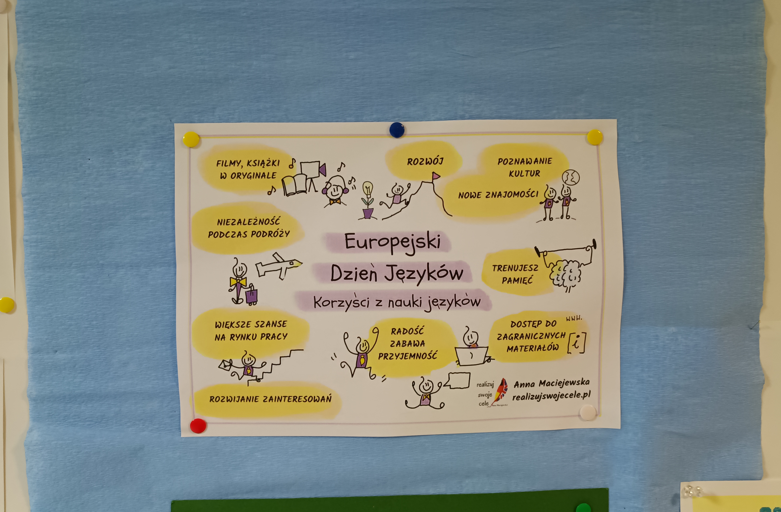 FILMY, KSIĄŻKI
W ORYGINALE
ROZWÓJ
POZNAWANIE
KULTUR
NOWE ZNAJOMOŚCI
NIEZALEŻNOŚĆ
PODCZAS PODRÓŻY
Europejski
Dzień Języków
Korzyści z nauki języków
TRENUJESZ
PAMIĘĆ
WIĘKSZE SZANSE
NA RYNKU PRACY
RADOŚĆ
ZABAWA
PRZYJEMNOŚĆ
WWW.
DOSTĘP DO
ZAGRANICZNYCH
MATERIAŁÓW
[i]
ROZWIJANIE ZAINTERESOWAŃ
realizuj
swoje
cele
Anna Maciejewska
realizujswojecele.pl